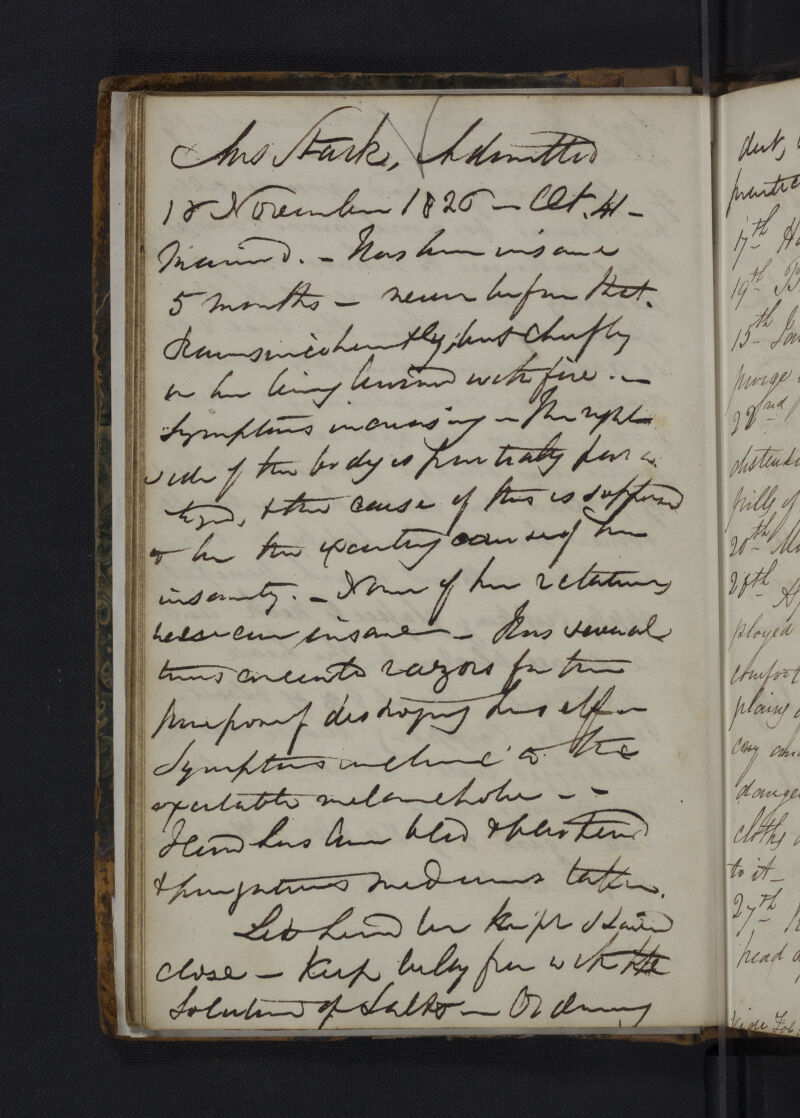 Mrs Stark, Admitted
18 November 1826 – Aet. 41 –
Married. – Has been insane
5 months – never before that.
Raves incoherently, but chiefly
on her being burned with fire. –
Symptoms increasing – The right
side of the body is partially para
lyzed, & the cause of this is supposed
to be the exciting cause of her
insanity. – None of her relations
were ever insane – Has several
times concealed razors for the
purpose of destroying herself –
Symptoms incline to the
excitable melancholia – –
Head has been bled & blistered
& purgatives medicines taken.
Let head be kept shaved
close – Keep belly free with the
Solution of Salts – Ordinary
diet,
17th
19th
15th
purge
22nd
pills of
20th
28th
ployed
comfort
plains
any
danger
cloths
to it –
27th
head
Vide Fol